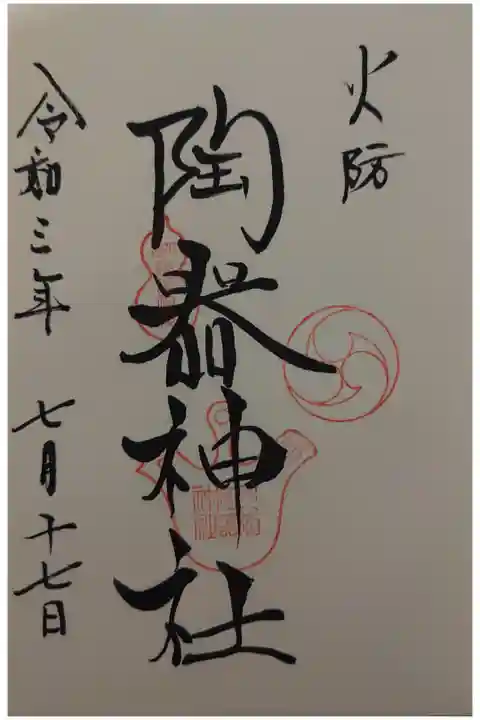 火防
陶器神社
令和三年 七月十七日